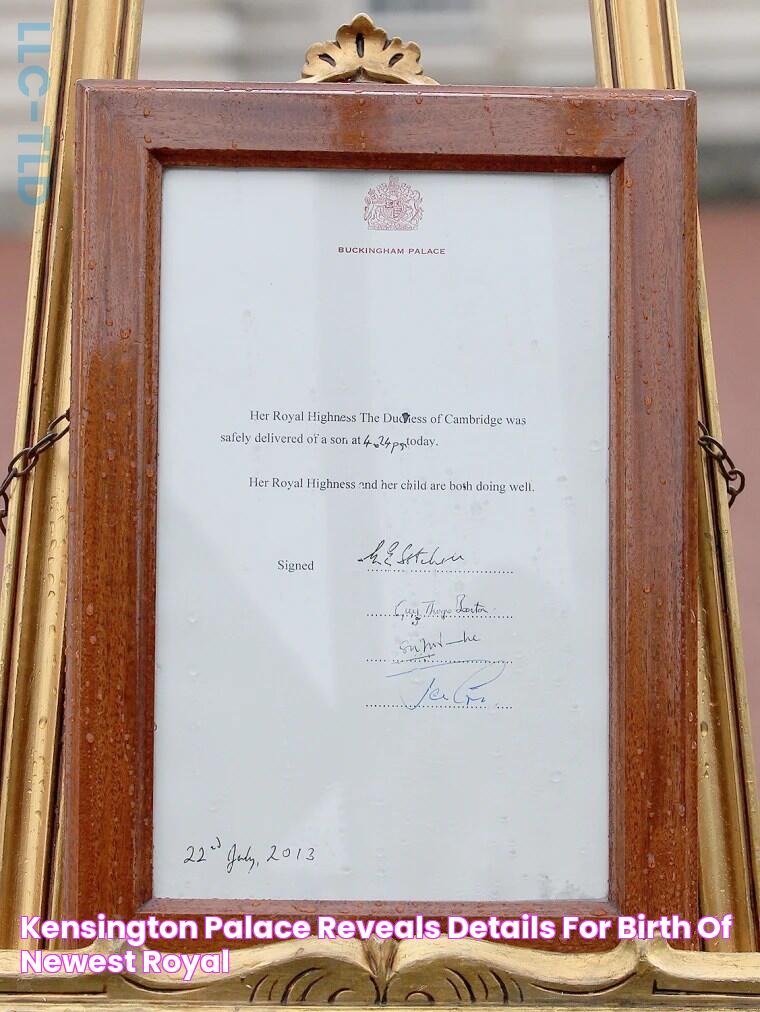 LLC-TLD
BUCKINGHAM PALACE
Her Royal Highness The Duchess of Cambridge was
safely delivered of a son at 4.24pm today.
Her Royal Highness and her child are both doing well.
Signed
Guy Thorpe Beeston
22nd July, 2013
Kensington Palace Reveals Details For Birth Of
Newest Royal